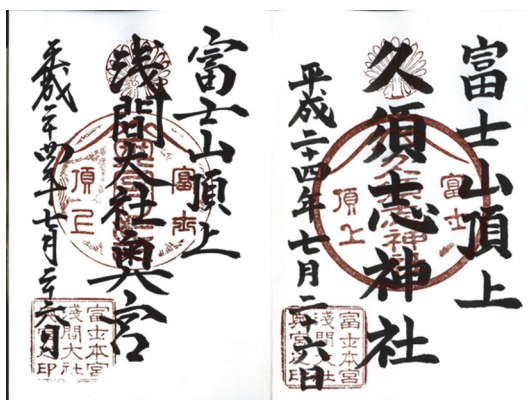 富士山頂上
久須志神社
平成二十四年七月二十六日
富士
頂上
富士本宮
浅間大社
奥宮之印
富士山頂上
浅間大社奥宮
平成二十四年七月二十六日
富士
頂上
富士本宮
浅間大社
印